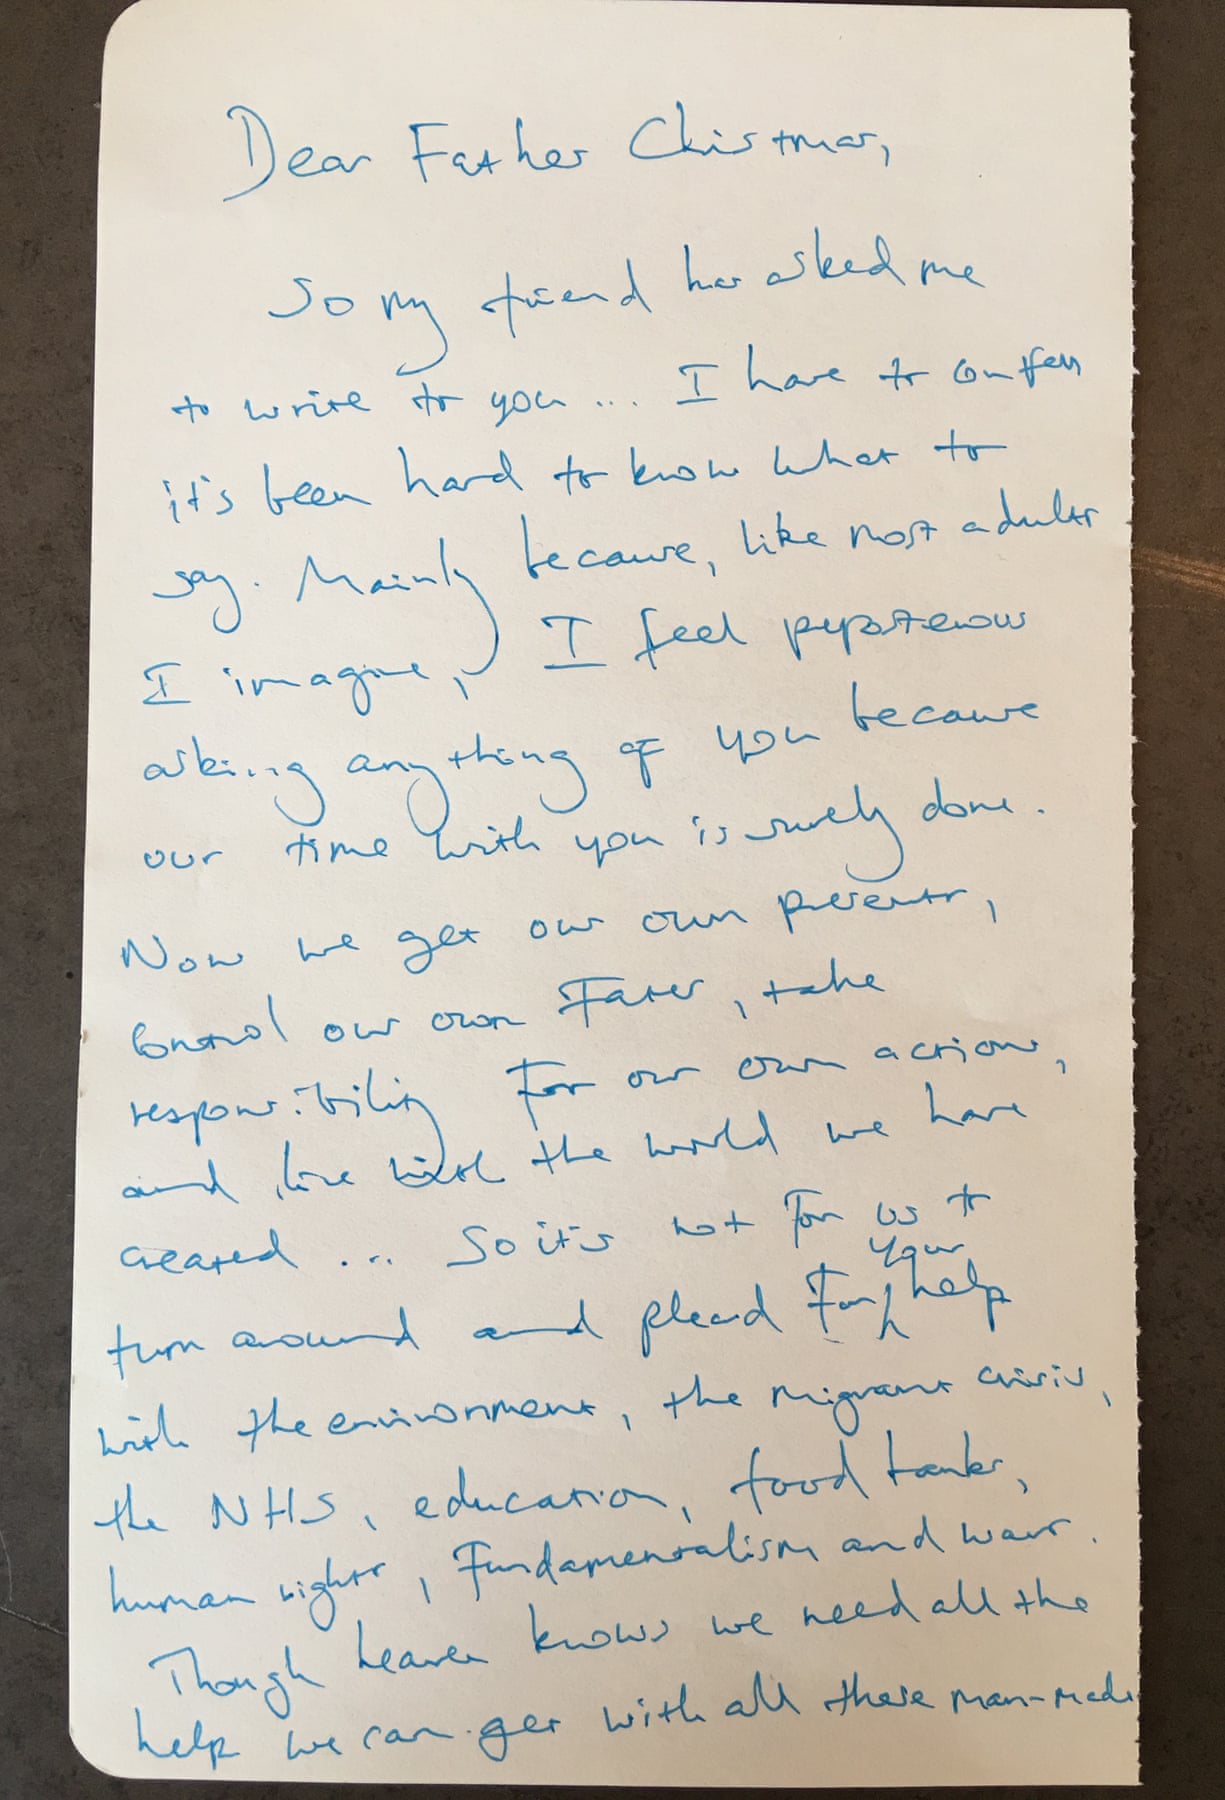 Dear Father Christmas,
So my friend has asked me
to write to you ... I have to confess
it's been hard to know what to
say. Mainly because, like most adults
I imagine, I feel preposterous
asking anything of you because
our time with you is surely done.
Now we get our own presents,
control our own Fates, take
responsibility For our own actions,
and live with the world we have
created ... So it's not For us to
turn around and plead For your help
with the environment, the migrant crisis,
the NHS, education, food banks,
human rights, Fundamentalism and wars.
Though heaven knows we need all the
help we can get with all these man-made